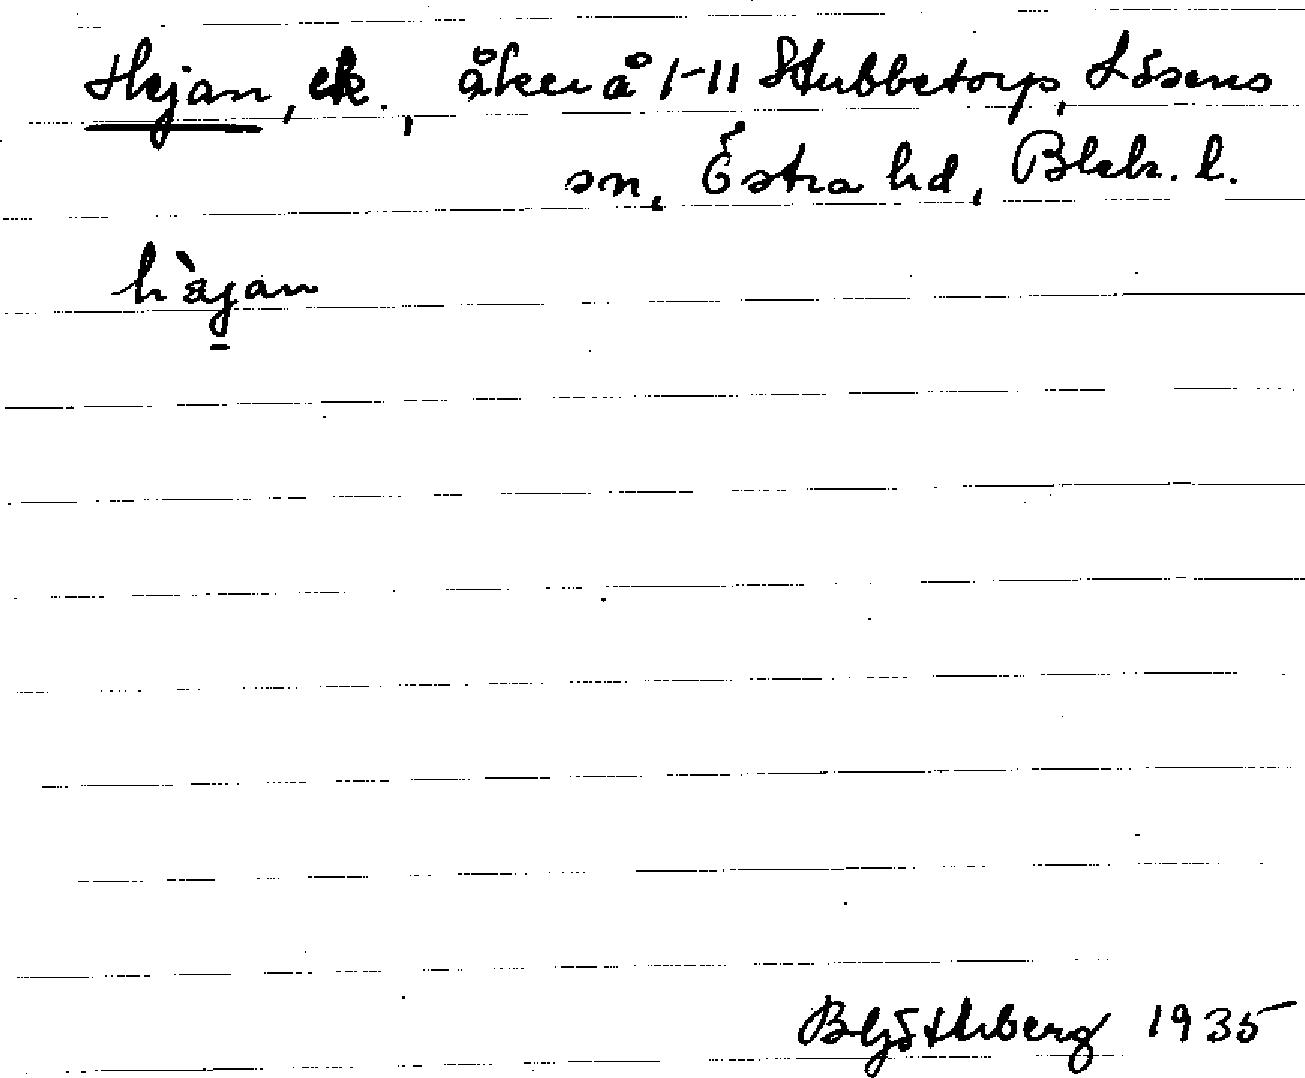 Hejan, ek., åker å 1-11 Stubbetorp, Lösens
sn, Östra hd, Blek. l.
hàjan
1935